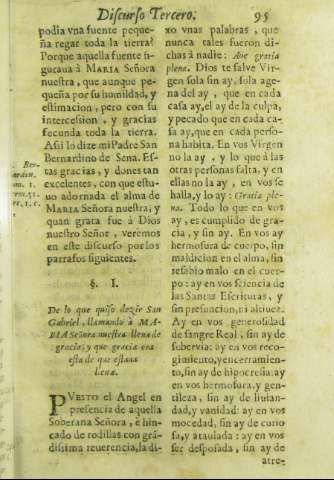 Discurso Tercero.
95
podia vna fuente peque-
ña regar toda la tierra?
Porque aquella fuente fi-
guraua à MARIA Señora
nuestra, que aunque pe-
queña por su humildad, y
estimacion, pero con su
intercession, y gracias
fecunda toda la tierra.
Assi lo dize mi Padre San
Bernardino de Sena. Es-
tas gracias, y dones tan
excelentes, con que estu-
uo adornada el alma de
MARIA Señora nuestra, y
quan grata fue à Dios
nuestro Señor, veremos
en este discurso por los
parrafos siguientes.
§. I.
De lo que quiso dezir San
Gabriel, llamando à MA-
RIA Señora nuestra llena de
gracia, y que gracia era
esta de que estaua
llena.
PVESTO el Angel en
presencia de aquella
Soberana Señora, è hin-
cado de rodillas con grã-
dissima reuerencia, la di-
xo vnas palabras, que
nunca tales fueron di-
chas à nadie: Aue gratia
plena. Dios te salve Vir-
gen sola sin ay, sola age-
na del ay, que en cada
casa ay, el ay de la culpa,
y pecado que en cada ca-
sa ay, que en cada perso-
na habita. En vos Virgen
no la ay, y lo que à las
otras personas falta, y en
ellas no la ay, en vos se
halla, y lo ay: Gratia ple-
na. Todo lo que en vos
ay, es cumplido de gra-
cia, y sin ay. En vos ay
hermosura de cuerpo, sin
maldicion en el alma, sin
resabio malo en el cuer-
po: ay en vos sciencia de
las Santas Escrituras, y
sin presuncion, ni altiuez.
Ay en vos generosidad
de sangre Real, sin ay de
soberuia: ay en vos reco-
gimiento, y encerramien-
to, sin ay de hipocresia: ay
en vos hermosura, y gen-
tileza, sin ay de liuian-
dad, y vanidad: ay en vos
mocedad, sin ay de curio
sa, y ataulada: ay en vos
ser desposada, sin ay de
atre-
Ber-